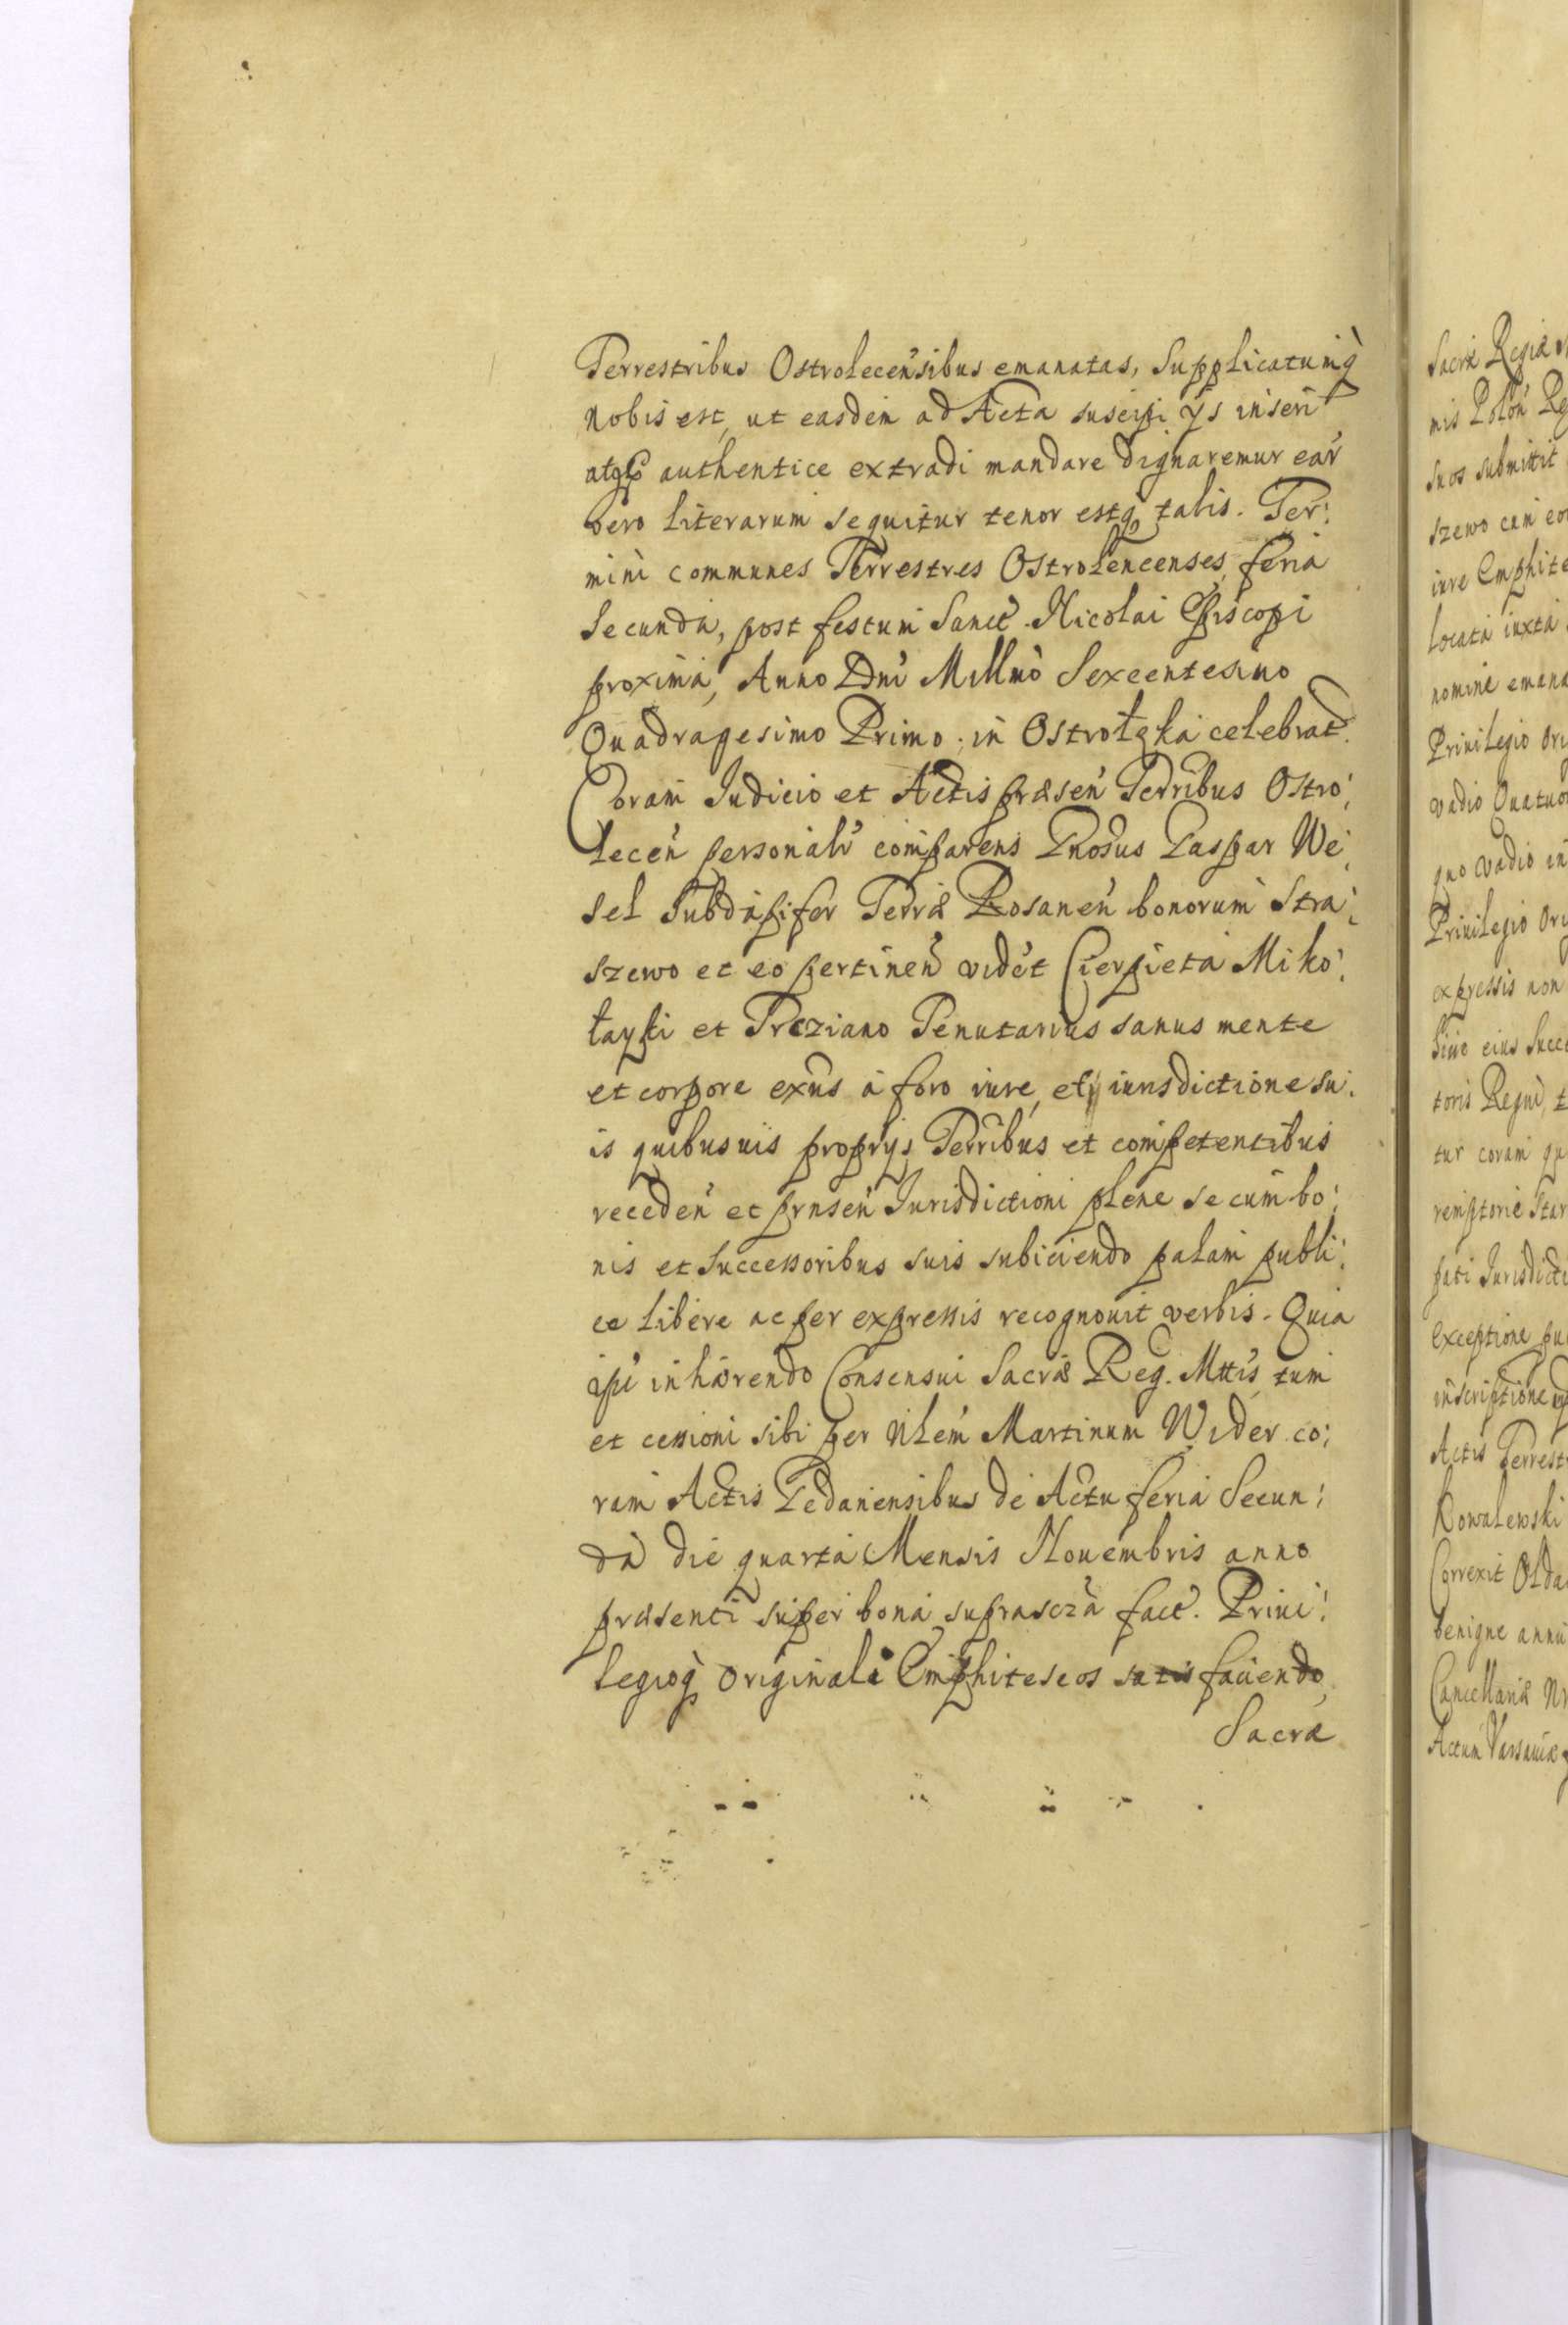 Terrestribus Ostrolecen̄sibus emanatas, Supplicatumq̀
nobis est, ut easdem ad Acta suscipi ijs inseri
atq̃ authentice extradi mandare dignaremur ear̃
vero literarum sequitur tenor estq̨ talis. Ter:
mini communes Terrestres Ostrolencenses, feria
Secunda, post festum Sanct̃. Nicolai Episcopi
proxima, Anno Dn̄i Mill̄mo Sexcentesimo
Quadragesimo Primo. in Ostrołęka celebrat̃.
Coram Iudicio et Actis præsen̄ Terr̄ibus Ostro:
lecen̄ personalr̃ comparens Gn̄osus Gaspar We:
sel Subdapifer Terræ Rosanen̄ bonorum Stra:
szewo et eo pertinen̄ videt̃ Cierpieta Miko:
łayki et Treziano Tenutarius sanus mente
et corpore exn̄s a foro iure, et iurisdictione su:
is quibusuis proprijs Terr̄ibus et competentibus
receden̄ et prnsen̄ Iurisdictioni plene se cum bo:
nis et Successoribus suis subiiciendo palam publi:
ce libere ac per expressis recognouit verbis. Quia
ipse inhærendo Consensui Sacræ Reg. Mttis tum
et cessioni sibi per Nłem̃ Martinum Wider co:
ram Actis Gedanensibus de Actu feria Secun:
dà die quarta Mensis Nouembris anno
præsenti super bona suprascr̃a fact̃. Priui:
legioq̨ originali Emphiteseos satis fauendo
Sacræ
Sacræ Regiæ
nis Polon̄ Re
suos submittit
szewo cum eo
iure Emphite
locata iuxta
nomine emana
Priuilegio ori
vadio Quatuor
quo vadio in
Priuilegio Ori
expressis non
eius Succe
toris Regni, t
tur coram qu
remptorie Star
pati Iurisdicti
Exceptione
inscriptione
Actis Terrest
Kowalewski
Correxit Olda
benigne annu
Cancellariæ Nr
Actum Varsauiæ